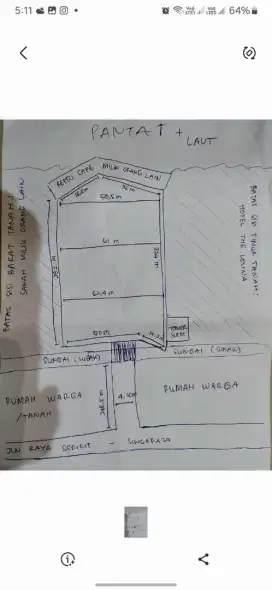 5:11
64%
PANTAI + LAUT
RESTO CAFE MILIK ORANG LAIN
60,5 m
61 m
BATAS SISI BARAT TANAH:
SAWAH MILIK ORANG LAIN
BATAS SISI TIMUR TANAH:
HOTEL THE LOVINA
SUNGAI (SUBAK)
SUNGAI (SUBAK)
RUMAH WARGA
/TANAH
RUMAH WARGA
JLN RAYA SERIRIT - SINGARAJA